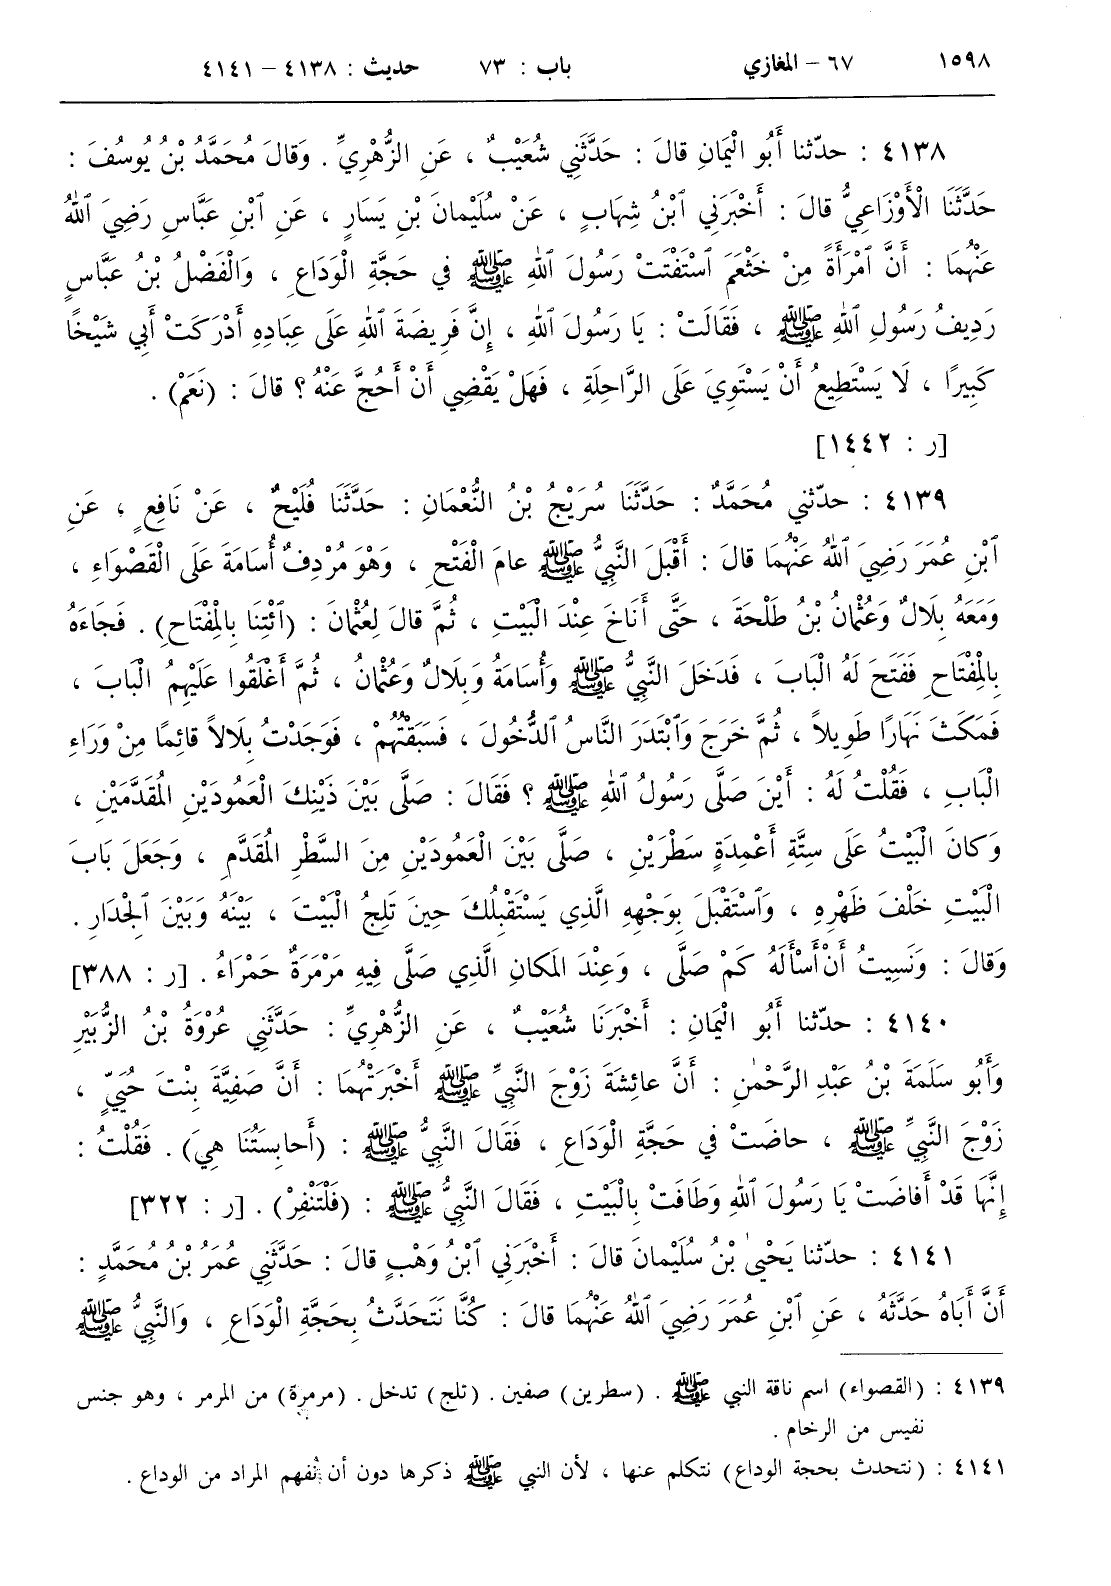 ١٥٩٨ ٦٧ – المغازي باب : ٧٣ حديث : ٤١٣٨ – ٤١٤١
٤١٣٨ : حدّثنا أَبُو الْيَمَانِ قالَ : حَدَّثَنِي شُعَيْبٌ ، عَنِ الزُّهْرِيِّ . وَقالَ مُحَمَّدُ بْنُ يُوسُفَ :
حَدَّثَنَا الْأَوْزَاعِيُّ قالَ : أَخْبَرَنِي ٱبْنُ شِهَابٍ ، عَنْ سُلَيْمانَ بْنِ يَسَارٍ ، عَنِ ٱبْنِ عَبَّاسٍ رَضِيَ ٱللهُ
عَنْهُمَا : أَنَّ ٱمْرَأَةً مِنْ خَثْعَمَ ٱسْتَفْتَتْ رَسُولَ ٱللهِ ﷺ في حَجَّةِ الْوَدَاعِ ، وَالْفَضْلُ بْنُ عَبَّاسٍ
رَدِيفُ رَسُولِ ٱللهِ ﷺ ، فَقَالَتْ : يَا رَسُولَ ٱللهِ ، إِنَّ فَرِيضَةَ ٱللهِ عَلَى عِبَادِهِ أَدْرَكَتْ أَبِي شَيْخًا
كَبِيرًا ، لَا يَسْتَطِيعُ أَنْ يَسْتَوِيَ عَلَى الرَّاحِلَةِ ، فَهَلْ يَقْضِي أَنْ أَحُجَّ عَنْهُ ؟ قالَ : (نَعَمْ) .
[ر : ١٤٤٢]
٤١٣٩ : حدّثني مُحَمَّدٌ : حَدَّثَنَا سُرَيْجُ بْنُ النُّعْمَانِ : حَدَّثَنَا فُلَيْحٌ ، عَنْ نَافِعٍ ، عَنِ
ٱبْنِ عُمَرَ رَضِيَ ٱللهُ عَنْهُمَا قالَ : أَقْبَلَ النَّبِيُّ ﷺ عامَ الْفَتْحِ ، وَهْوَ مُرْدِفٌ أُسَامَةَ عَلَى الْقَصْوَاءِ ،
وَمَعَهُ بِلَالٌ وَعُثْمانُ بْنُ طَلْحَةَ ، حَتَّى أَنَاخَ عِنْدَ الْبَيْتِ ، ثُمَّ قالَ لِعُثْمانَ : (ٱئْتِنَا بِالْمِفْتَاحِ) . فَجَاءَهُ
بِالْمِفْتَاحِ فَفَتَحَ لَهُ الْبَابَ ، فَدَخَلَ النَّبِيُّ ﷺ وَأُسَامَةُ وَبِلَالٌ وَعُثْمانُ ، ثُمَّ أَغْلَقُوا عَلَيْهِمُ الْبَابَ ،
فَمَكَثَ نَهَارًا طَوِيلاً ، ثُمَّ خَرَجَ وَٱبْتَدَرَ النَّاسُ ٱلدُّخُولَ ، فَسَبَقْتُهُمْ ، فَوَجَدْتُ بِلَالاً قائِمًا مِنْ وَرَاءِ
الْبَابِ ، فَقُلْتُ لَهُ : أَيْنَ صَلَّى رَسُولُ ٱللهِ ﷺ ؟ فَقَالَ : صَلَّى بَيْنَ ذَيْنِكَ الْعَمُودَيْنِ الْمُقَدَّمَيْنِ ،
وَكانَ الْبَيْتُ عَلَى سِتَّةِ أَعْمِدَةٍ سَطْرَيْنِ ، صَلَّى بَيْنَ الْعَمُودَيْنِ مِنَ السَّطْرِ الْمُقَدَّمِ ، وَجَعَلَ بَابَ
الْبَيْتِ خَلْفَ ظَهْرِهِ ، وَٱسْتَقْبَلَ بِوَجْهِهِ الَّذِي يَسْتَقْبِلُكَ حِينَ تَلِجُ الْبَيْتَ ، بَيْنَهُ وَبَيْنَ ٱلْجِدَارِ .
وَقالَ : وَنَسِيتُ أَنْ أَسْأَلَهُ كَمْ صَلَّى ، وَعِنْدَ الْمَكانِ الَّذِي صَلَّى فِيهِ مَرْمَرَةٌ حَمْرَاءُ . [ر : ٣٨٨]
٤١٤٠ : حدّثنا أَبُو الْيَمَانِ : أَخْبَرَنَا شُعَيْبٌ ، عَنِ الزُّهْرِيِّ : حَدَّثَنِي عُرْوَةُ بْنُ الزُّبَيْرِ
وَأَبُو سَلَمَةَ بْنُ عَبْدِ الرَّحْمٰنِ : أَنَّ عائِشَةَ زَوْجَ النَّبِيِّ ﷺ أَخْبَرَتْهُمَا : أَنَّ صَفِيَّةَ بِنْتَ حُيَيٍّ ،
زَوْجَ النَّبِيِّ ﷺ ، حاضَتْ في حَجَّةِ الْوَدَاعِ ، فَقَالَ النَّبِيُّ ﷺ : (أَحابِسَتُنَا هِيَ) . فَقُلْتُ :
إِنَّهَا قَدْ أَفاضَتْ يَا رَسُولَ ٱللهِ وَطَافَتْ بِالْبَيْتِ ، فَقَالَ النَّبِيُّ ﷺ : (فَلْتَنْفِرْ) . [ر : ٣٢٢]
٤١٤١ : حدّثنا يَحْيىٰ بْنُ سُلَيْمانَ قالَ : أَخْبَرَنِي ٱبْنُ وَهْبٍ قالَ : حَدَّثَنِي عُمَرُ بْنُ مُحَمَّدٍ :
أَنَّ أَبَاهُ حَدَّثَهُ ، عَنِ ٱبْنِ عُمَرَ رَضِيَ ٱللهُ عَنْهُمَا قالَ : كُنَّا نَتَحَدَّثُ بِحَجَّةِ الْوَدَاعِ ، وَالنَّبِيُّ ﷺ
٤١٣٩ : (القصواء) اسم ناقة النبي ﷺ . (سطرين) صفين . (تلج) تدخل . (مرمرة) من المرمر ، وهو جنس
نفيس من الرخام .
٤١٤١ : (نتحدث بحجة الوداع) نتكلم عنها ، لأن النبي ﷺ ذكرها دون أن نُفهم المراد من الوداع .